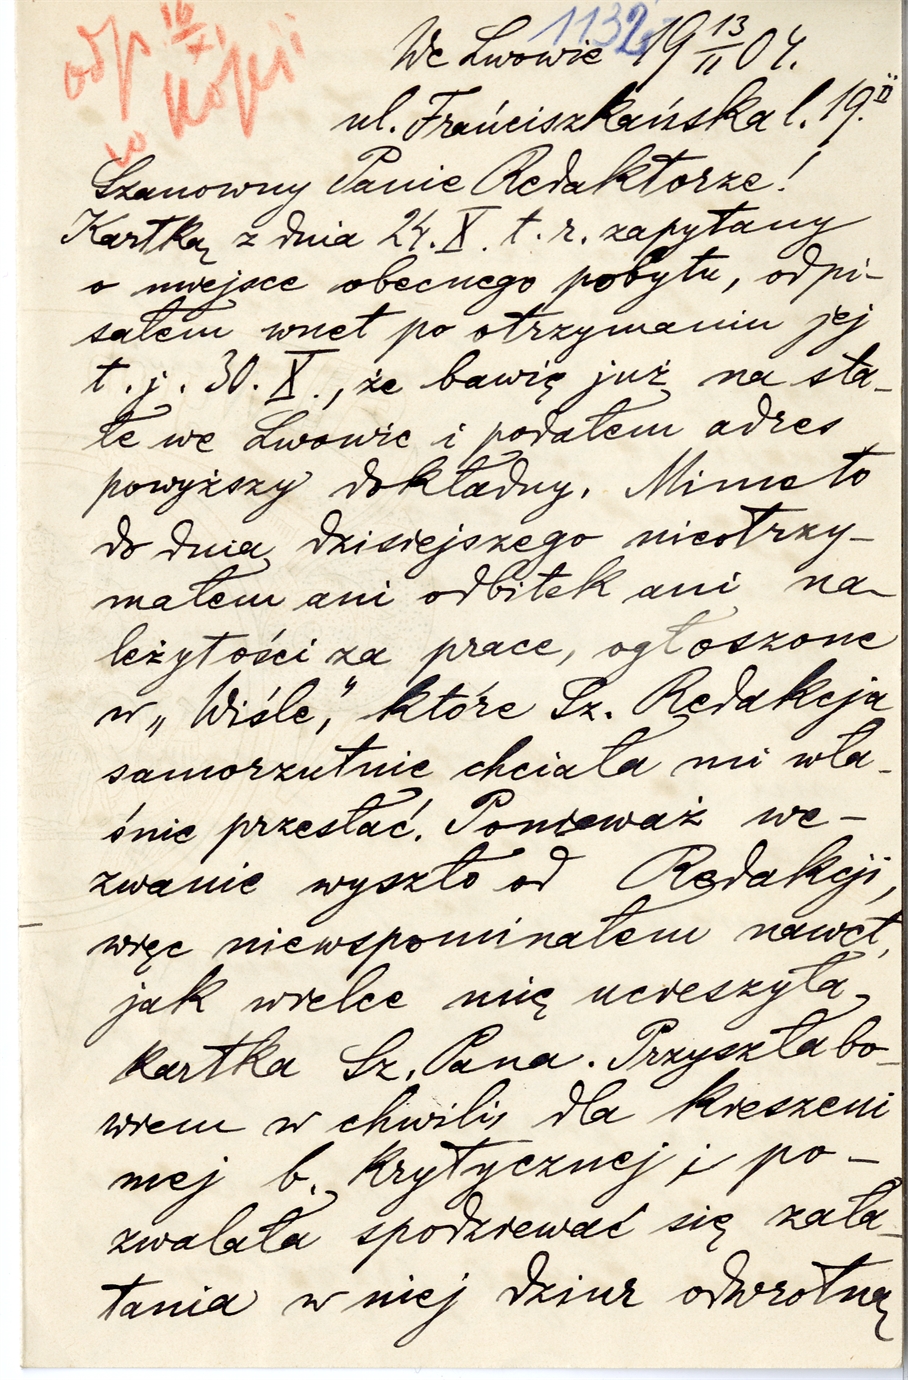 odp 16/XI
w kopii
1132
We Lwowie 19 13/11 04.
ul. Frańciszkańska l. 19. II
Szanowny Panie Redaktorze!
Kartką z dnia 24. X. t. r. zapytany
o miejsce obecnego pobytu, odpi-
sałem wnet po otrzymaniu jej
t. j. 30. X., że bawię już na sta-
łe we Lwowie i podałem adres
powyższy dokładny. Mimo to
do dnia dzisiejszego nieotrzy-
małem ani odbitek ani na-
leżytości za prace, ogłoszone
w „Wiśle," które Sz. Redakcja
samorzutnie chciała mi wła-
śnie przesłać. Ponieważ we-
zwanie wyszło od Redakcji,
więc niewspominałem nawet,
jak wielce mię ucieszyła
kartka Sz. Pana. Przyszła bo-
wiem w chwili, dla kieszeni
mej b. krytycznej i po-
zwalała spodziewać się zała-
tania w niej dziur odwrotną